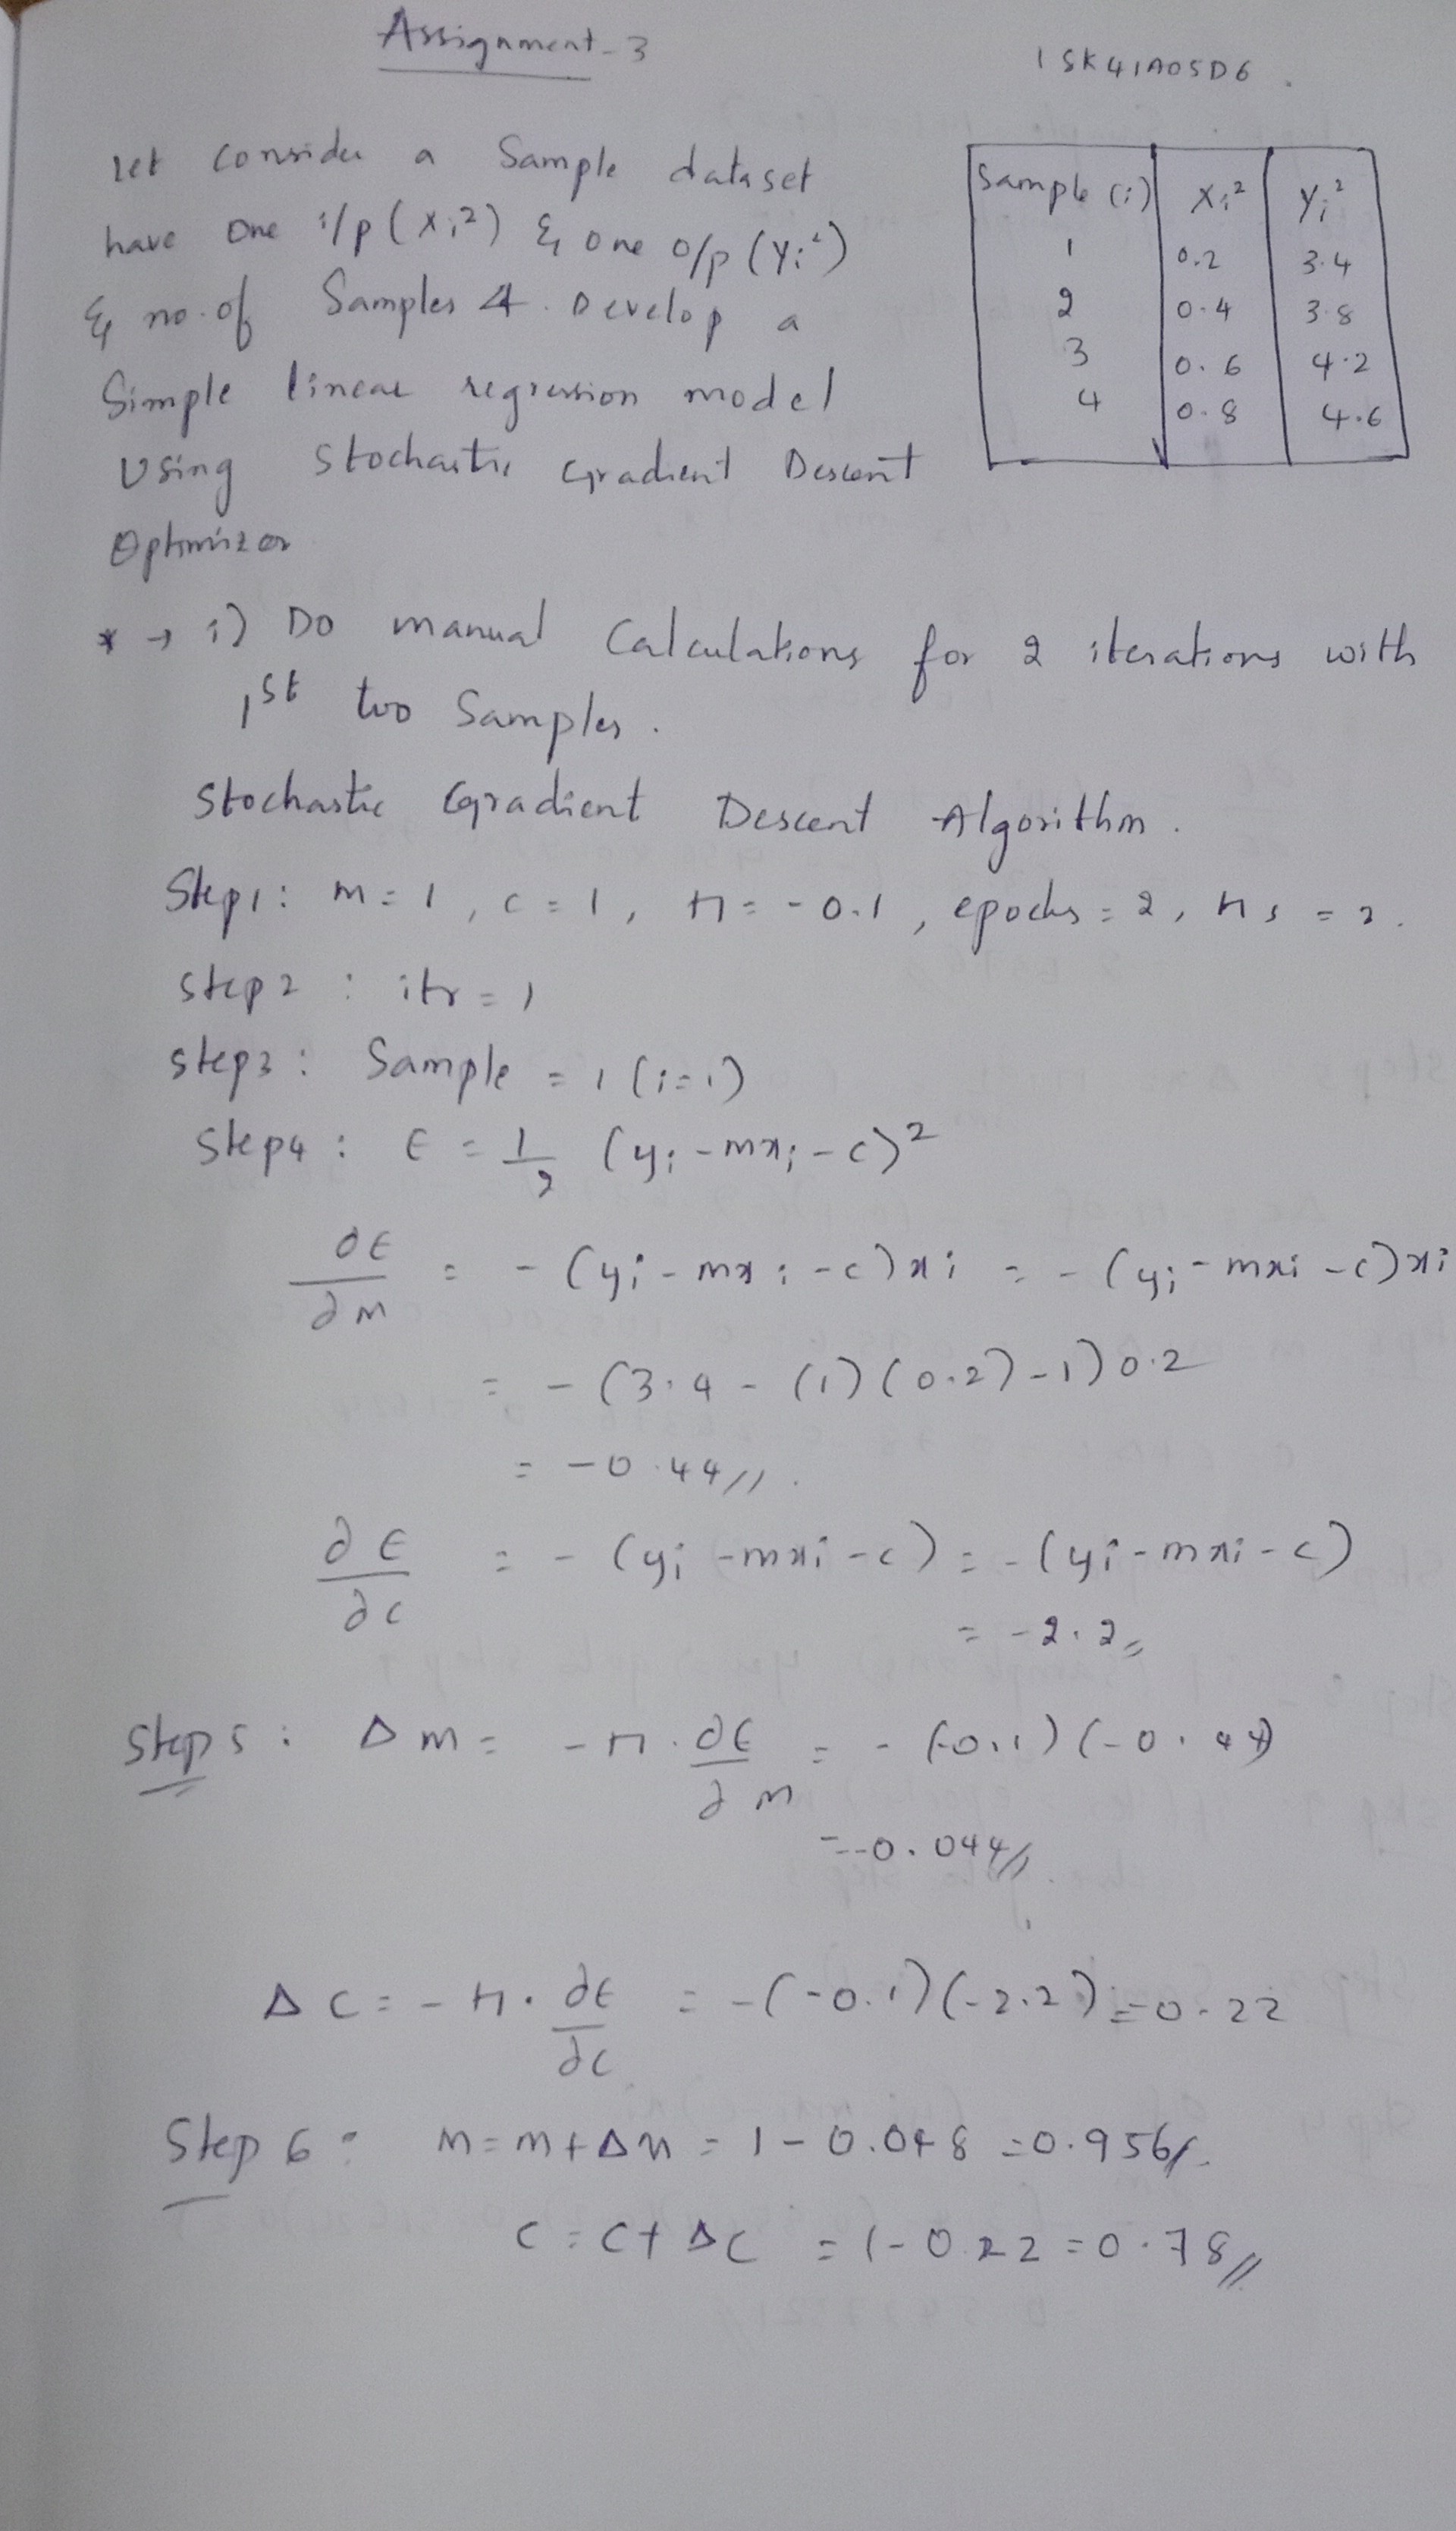 Assignment-3
15K41A05D6.
let consider a Sample dataset
have one i/p (xi²) & one o/p (yi²)
& no. of Samples 4. Develop a
Simple linear regression model
Using Stochastic Gradient Descent
Optimizer
Sample (i) Xi² Yi²
1 0.2 3.4
2 0.4 3.8
3 0.6 4.2
4 0.8 4.6
* → i) Do manual Calculations for 2 iterations with
1st two Samples.
Stochastic Gradient Descent Algorithm.
Step1: m=1, c=1, η=-0.1, epochs=2, ns=2.
Step2: itr=1
Step3: Sample=1 (i=1)
Step4: E = 1/2 (yi-mxi-c)²
∂E/∂m = -(yi-mxi-c)xi = -(yi-mxi-c)xi
= -(3.4-(1)(0.2)-1)0.2
= -0.44//.
∂E/∂c = -(yi-mxi-c) = -(yi-mxi-c)
= -2.2
Step5: Δm = -η.∂E/∂m = -(-0.1)(-0.44)
= -0.044//.
Δc = -η.∂E/∂c = -(-0.1)(-2.2) = -0.22
Step 6: m=m+Δm = 1-0.048 = 0.956//
c = c+Δc = 1-0.22 = 0.78//